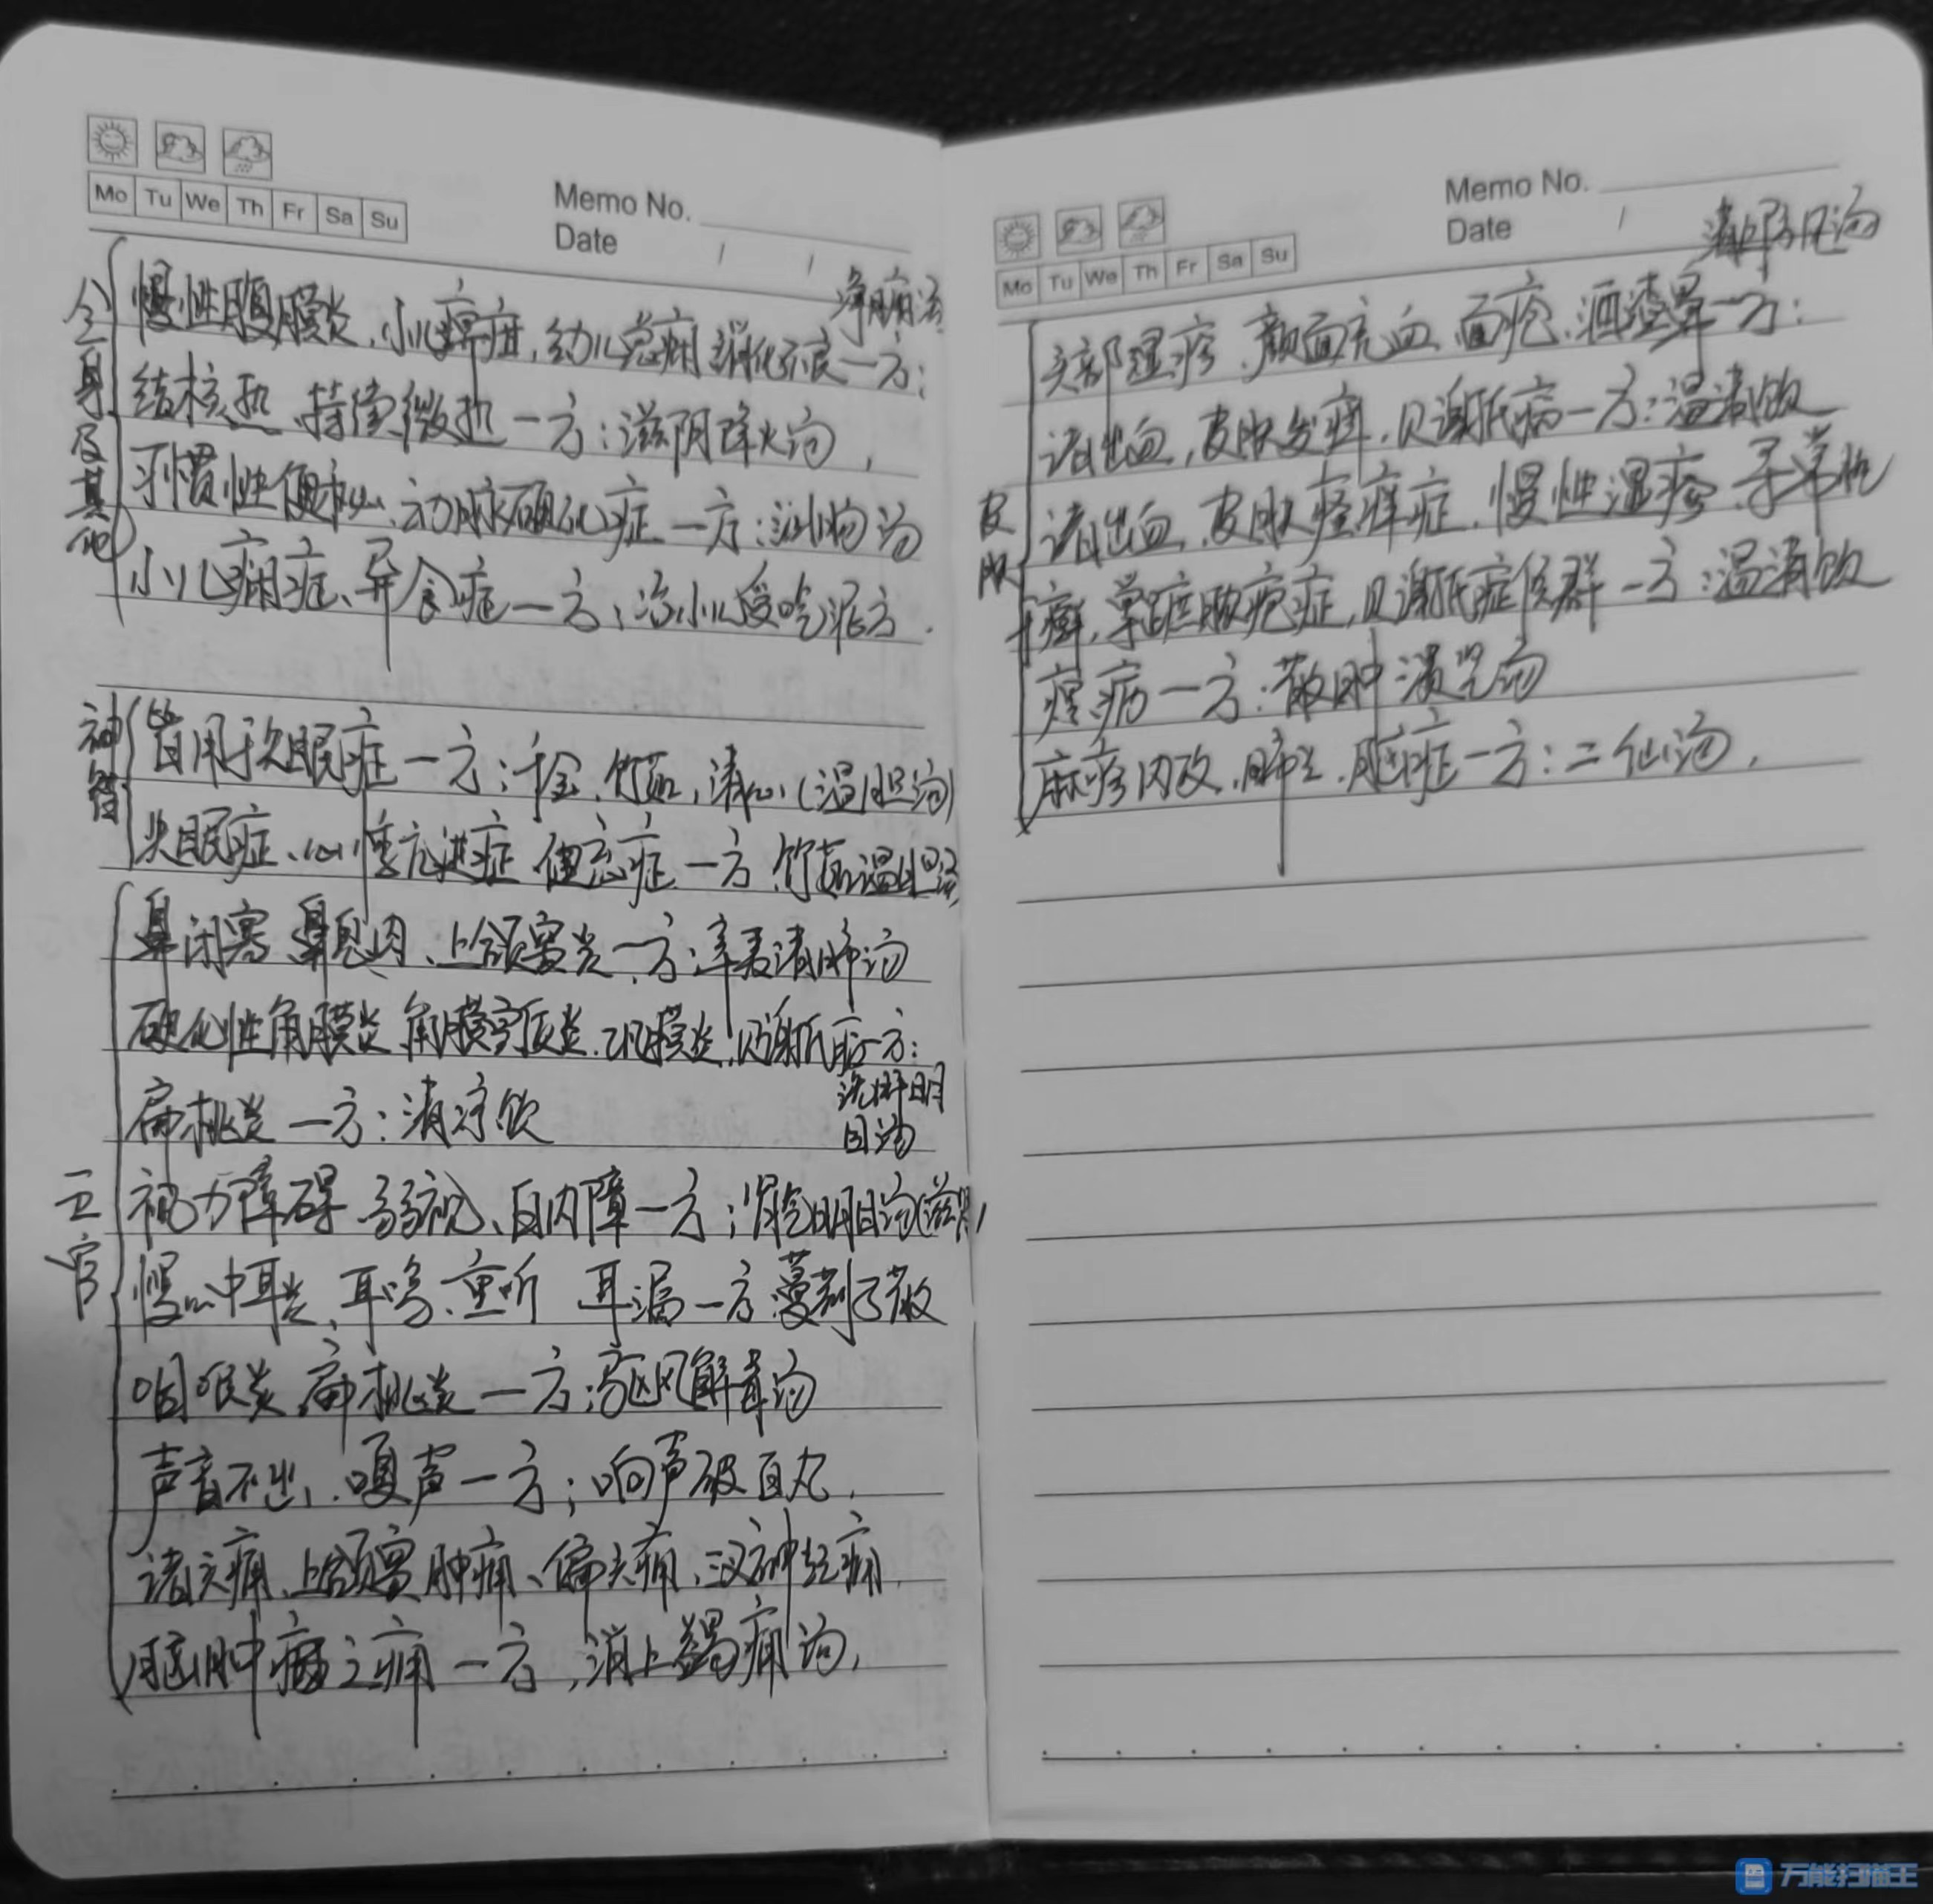 Mo Tu We Th Fr Sa Su
Memo No.
Date / /
全身及其他
慢性腹膜炎、小儿癖症、幼儿 消化不良一方:
结核热、持续微热一方:滋阴降火汤,
习惯性便秘、动脉硬化症一方: 汤
小儿痫症、异食症一方:治小儿爱吃泥方.
神智
皆用于失眠症一方:千金、竹茹,清心(温胆汤)
失眠症、心悸亢进症 健忘症一方 竹茹温胆汤
五官
鼻闭塞 鼻息肉、上颌窦炎一方:辛夷清肺汤
硬化性角膜炎 角膜实质炎、巩膜炎、贝谢氏病一方:
洗肝明
目汤
扁桃炎一方:清凉饮
视力障碍 弱视、白内障一方:肾气明目汤(滋肾)
慢性中耳炎、耳鸣、重听 耳漏一方 蔓荆子散
咽喉炎、扁桃炎一方:驱风解毒汤
声音不出、嘎声一方;响声破笛丸.
诸头痛、上颌窦肿痛、偏头痛、三叉神经痛.
脑肿瘤之痛一方,清上蠲痛汤,
Mo Tu We Th Fr Sa Su
Memo No.
Date /
清上防风汤
皮肤
头部湿疹、颜面充血、面疮、酒渣鼻一方:
诸出血,皮肤发痒、贝谢氏病一方:温清饮
诸出血、皮肤瘙痒症、慢性湿疹、寻常性
干癣,掌跖脓疱症,贝谢氏症候群一方:温清饮
瘰疬一方:散肿溃坚汤
麻疹内攻、肺炎、脑症一方:二仙汤,
万能扫描王